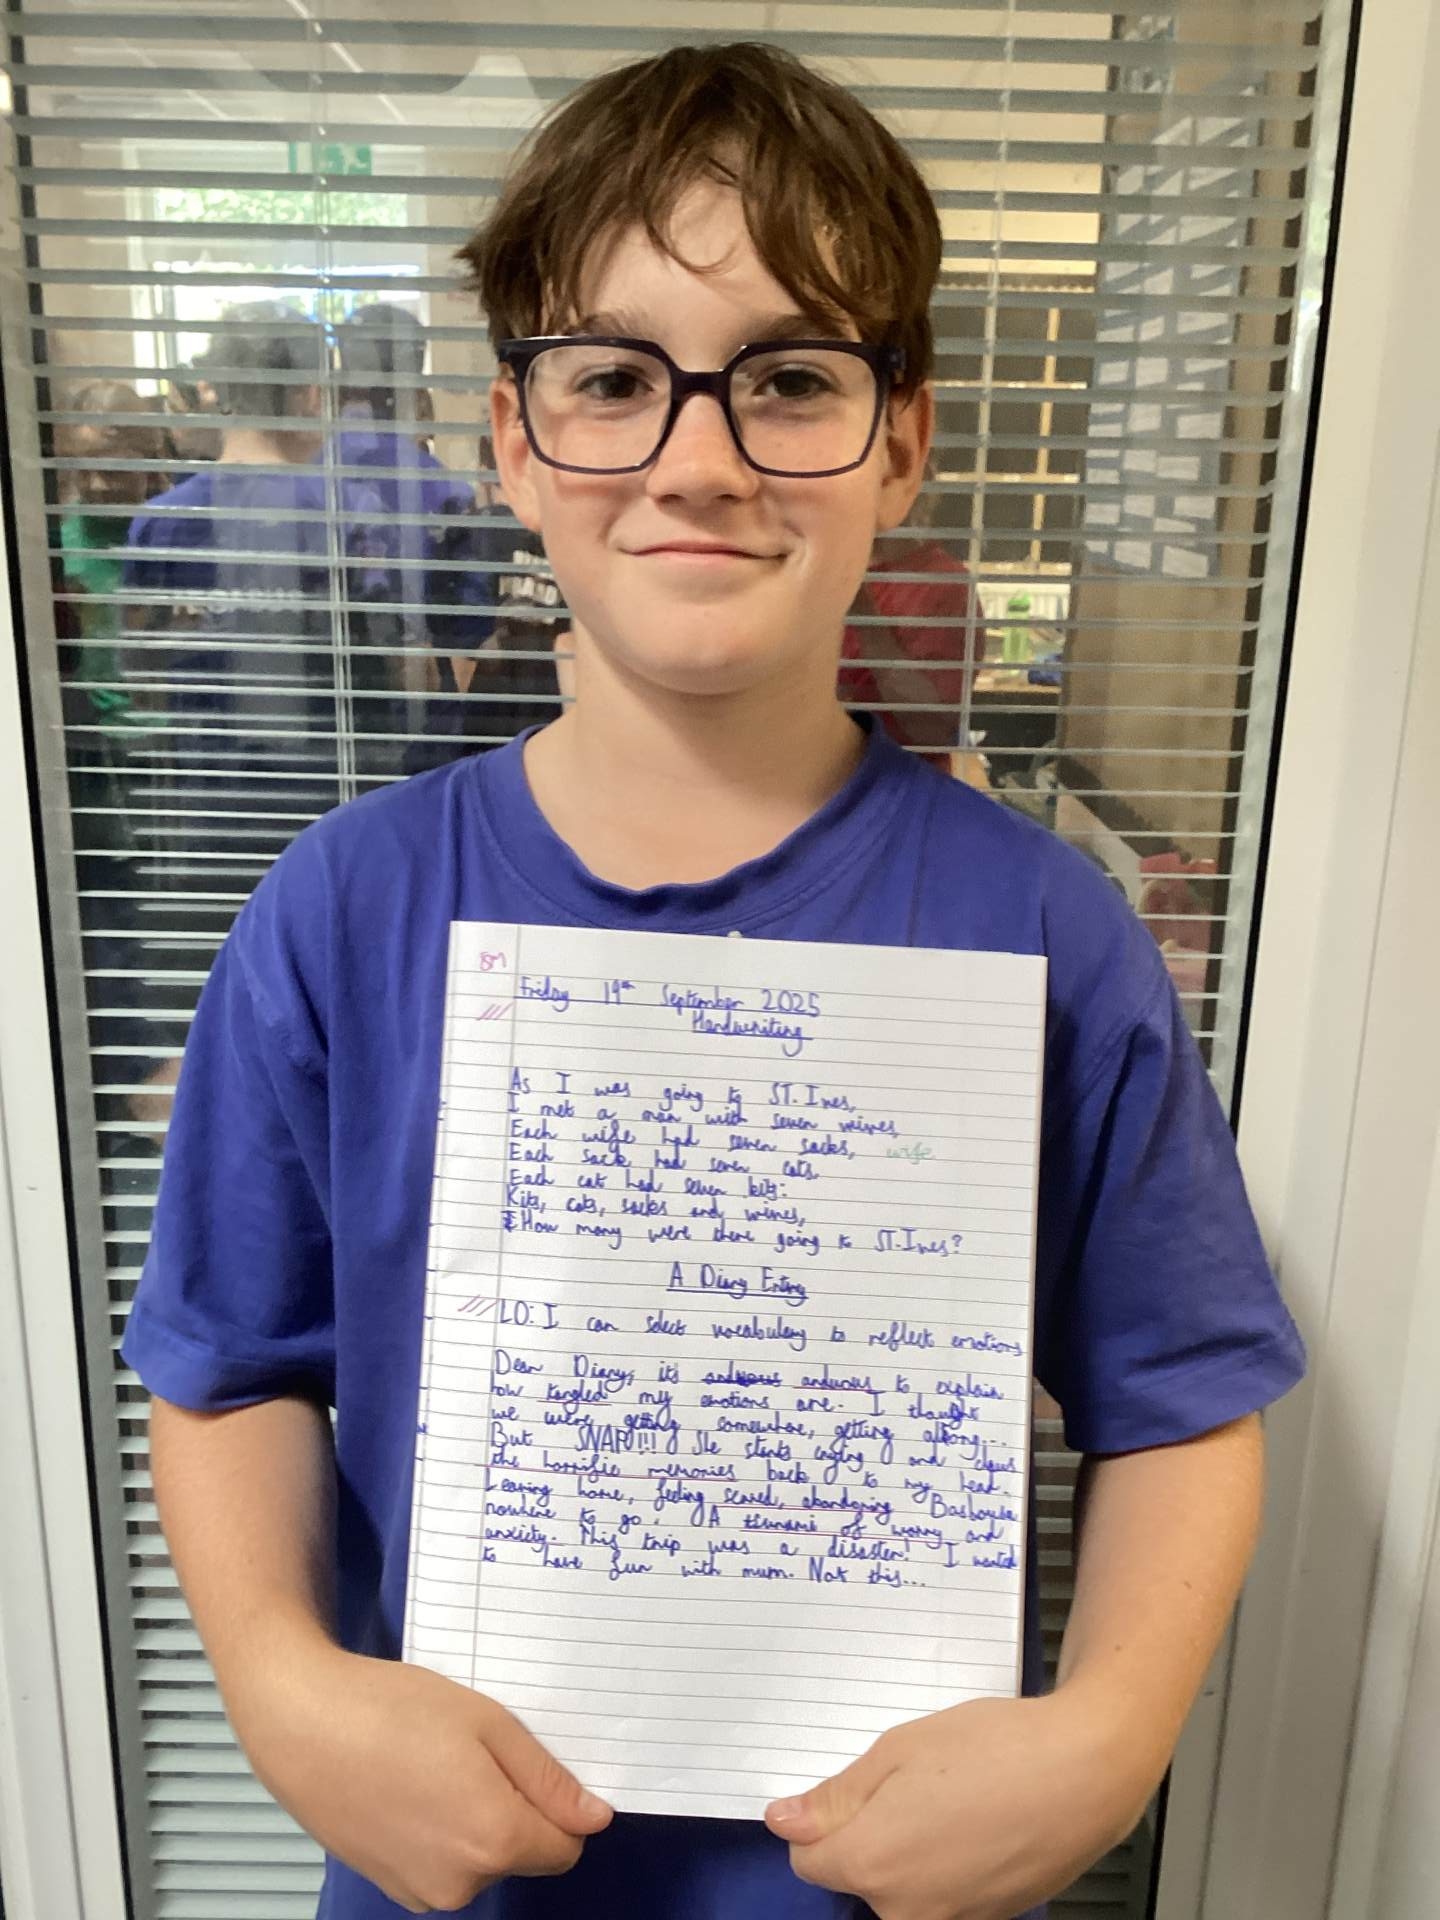 SM
Friday 19th September 2025
Handwriting
As I was going to ST. Ives,
I met a man with seven wives,
Each wife had seven sacks, wife
Each sack had seven cats,
Each cat had seven kits:
Kits, cats, sacks and wives,
How many were there going to ST. Ives?
A Diary Entry
LO: I can select vocabulary to reflect emotions
Dear Diary, it's to explain
how tangled my emotions are. I thought
we were getting somewhere, getting along...
But SNAP!!! She starts crying and claws
the horrific memories back to my head.
Leaving home, feeling scared, abandoning
nowhere to go. A tsunami of worry and
anxiety. This trip was a disaster! I wanted
to have fun with mum. Not this...